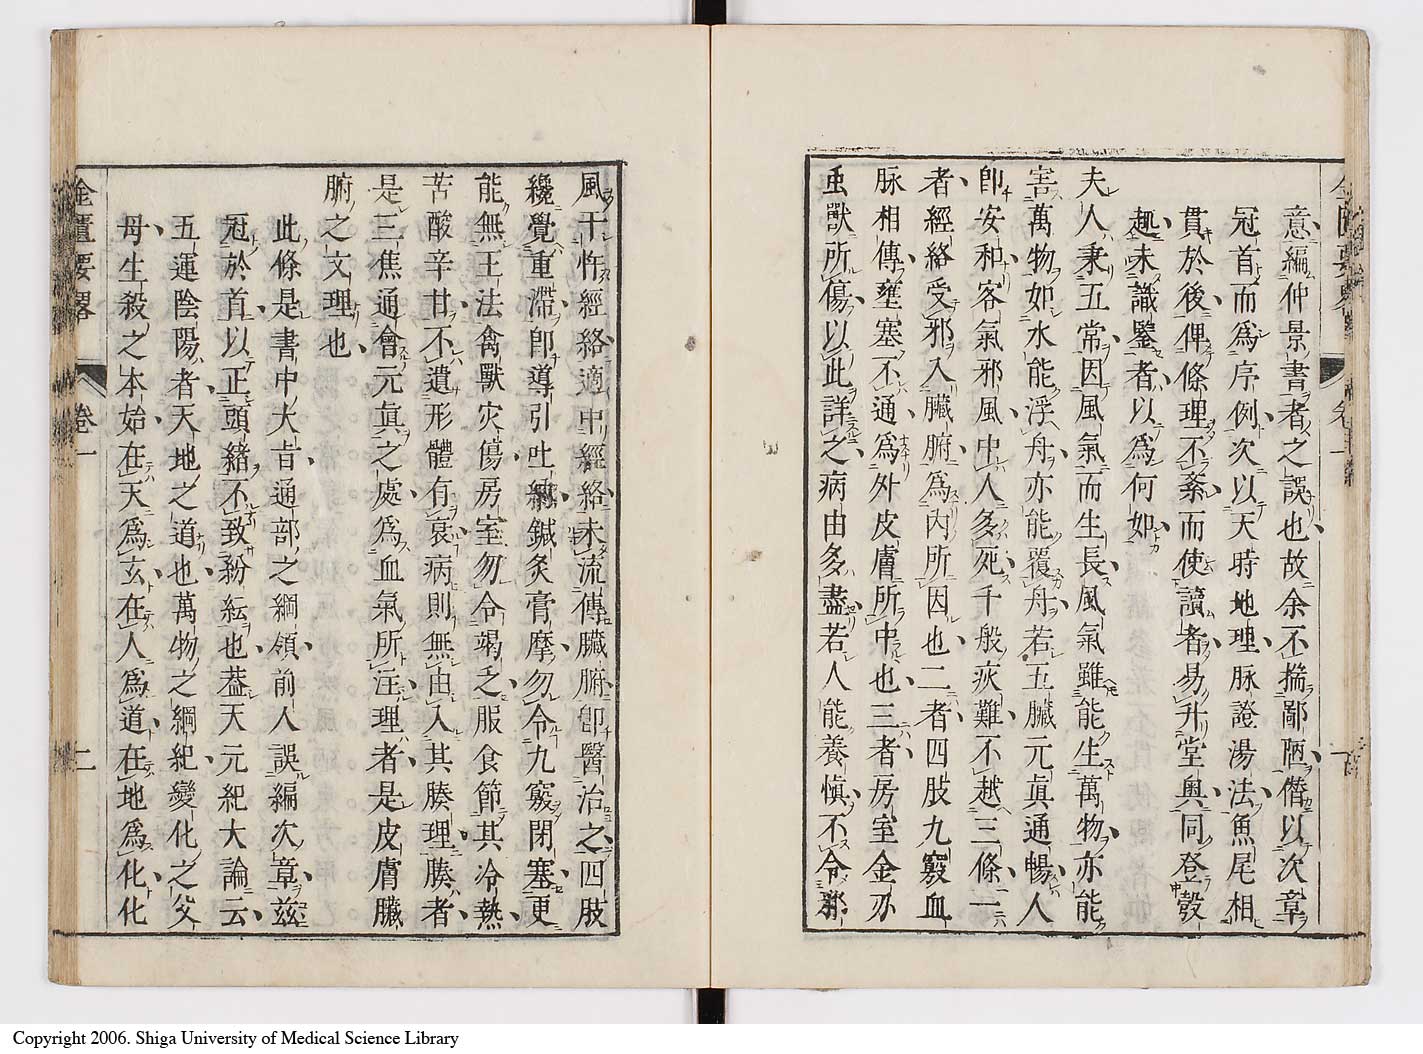 意編仲景書者之誤也故余不揣鄙陋僭以次章
冠首而爲序例次以天時地理脉證湯法魚尾相
貫於後俾條理不紊而使讀者易升堂與同登彀
趣未識鑒者以爲何如
夫人秉五常因風氣而生長風氣雖能生萬物亦能
害萬物如水能浮舟亦能覆舟若五臟元眞通暢人
卽安和客氣邪風中人多死千般疢難不越三條一
者經絡受邪入臟腑爲內所因也二者四肢九竅血
脉相傳壅塞不通爲外皮膚所中也三者房室金刃
虫獸所傷以此詳之病由多盡若人能養愼不令邪
風干忤經絡適中經絡未流傳臟腑卽醫治之四肢
纔覺重滯卽導引吐納鍼灸膏摩勿令九竅閉塞更
能無王法禽獸灾傷房室勿令竭乏服食節其冷熱
苦酸辛甘不遺形體有衰病則無由入其腠理腠者
是三焦通會元眞之處爲血氣所注理者是皮膚臟
腑之文理也
此條是書中大旨通部之綱領前人誤編次章茲
冠於首以正頭緒不致紛紜也葢天元紀大論云
五運陰陽者天地之道也萬物之綱紀變化之父
母生殺之本始在天爲玄在人爲道在地爲化化
金匱要畧
卷一
二
Copyright 2006. Shiga University of Medical Science Library